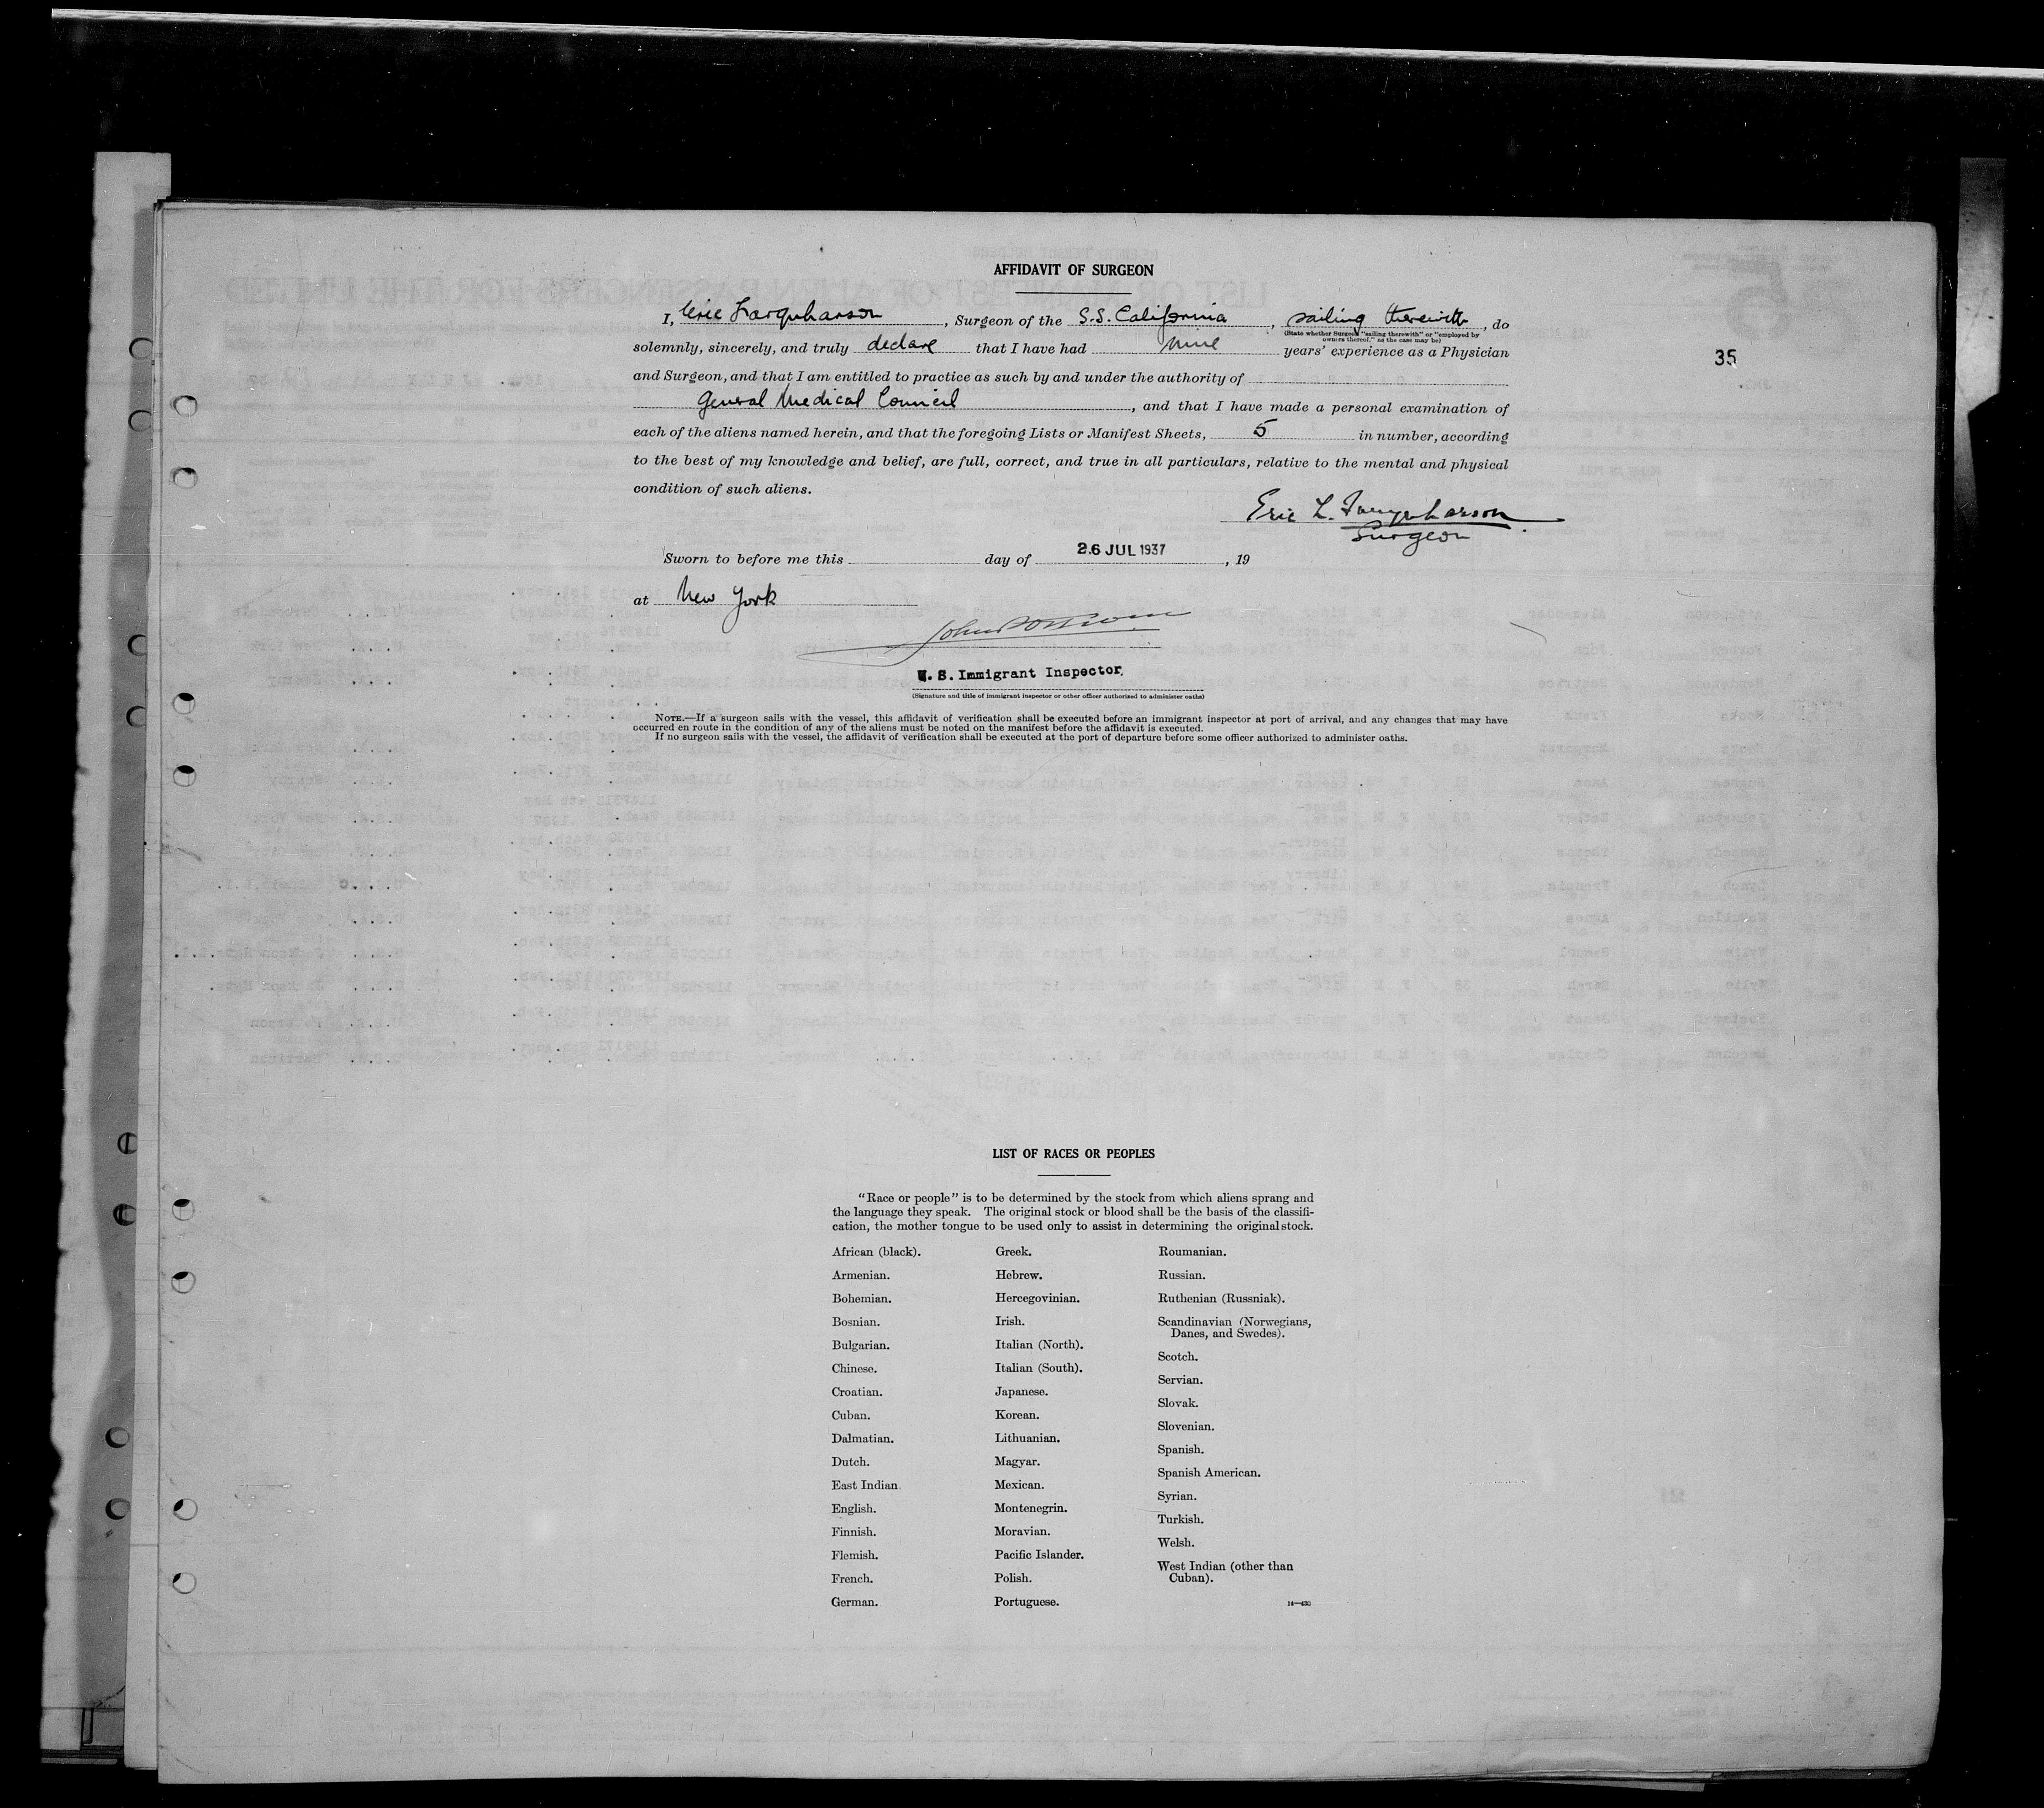 AFFIDAVIT OF SURGEON
I, Eric Farquharson, Surgeon of the S.S. California, sailing therewith, do
(State whether Surgeon "sailing therewith" or "employed by
owners thereof," as the case may be)
solemnly, sincerely, and truly declare that I have had nine years' experience as a Physician
35
and Surgeon, and that I am entitled to practice as such by and under the authority of
General Medical Council, and that I have made a personal examination of
each of the aliens named herein, and that the foregoing Lists or Manifest Sheets, 5 in number, according
to the best of my knowledge and belief, are full, correct, and true in all particulars, relative to the mental and physical
condition of such aliens.
Eric L. Farquharson
Surgeon
Sworn to before me this day of 26 JUL 1937, 19
at New York
John
U. S. Immigrant Inspector.
(Signature and title of immigrant inspector or other officer authorized to administer oaths)
NOTE.—If a surgeon sails with the vessel, this affidavit of verification shall be executed before an immigrant inspector at port of arrival, and any changes that may have
occurred en route in the condition of any of the aliens must be noted on the manifest before the affidavit is executed.
If no surgeon sails with the vessel, the affidavit of verification shall be executed at the port of departure before some officer authorized to administer oaths.
LIST OF RACES OR PEOPLES
"Race or people" is to be determined by the stock from which aliens sprang and
the language they speak. The original stock or blood shall be the basis of the classifi-
cation, the mother tongue to be used only to assist in determining the original stock.
African (black).
Armenian.
Bohemian.
Bosnian.
Bulgarian.
Chinese.
Croatian.
Cuban.
Dalmatian.
Dutch.
East Indian
English.
Finnish.
Flemish.
French.
German.
Greek.
Hebrew.
Hercegovinian.
Irish.
Italian (North).
Italian (South).
Japanese.
Korean.
Lithuanian.
Magyar.
Mexican.
Montenegrin.
Moravian.
Pacific Islander.
Polish.
Portuguese.
Roumanian.
Russian.
Ruthenian (Russniak).
Scandinavian (Norwegians,
Danes, and Swedes).
Scotch.
Servian.
Slovak.
Slovenian.
Spanish.
Spanish American.
Syrian.
Turkish.
Welsh.
West Indian (other than
Cuban).
14—430